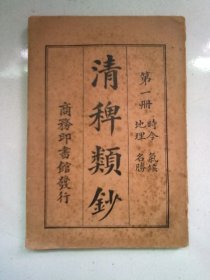 第一册 時令 氣候
地理 名勝
清稗類鈔
商務印書館發行